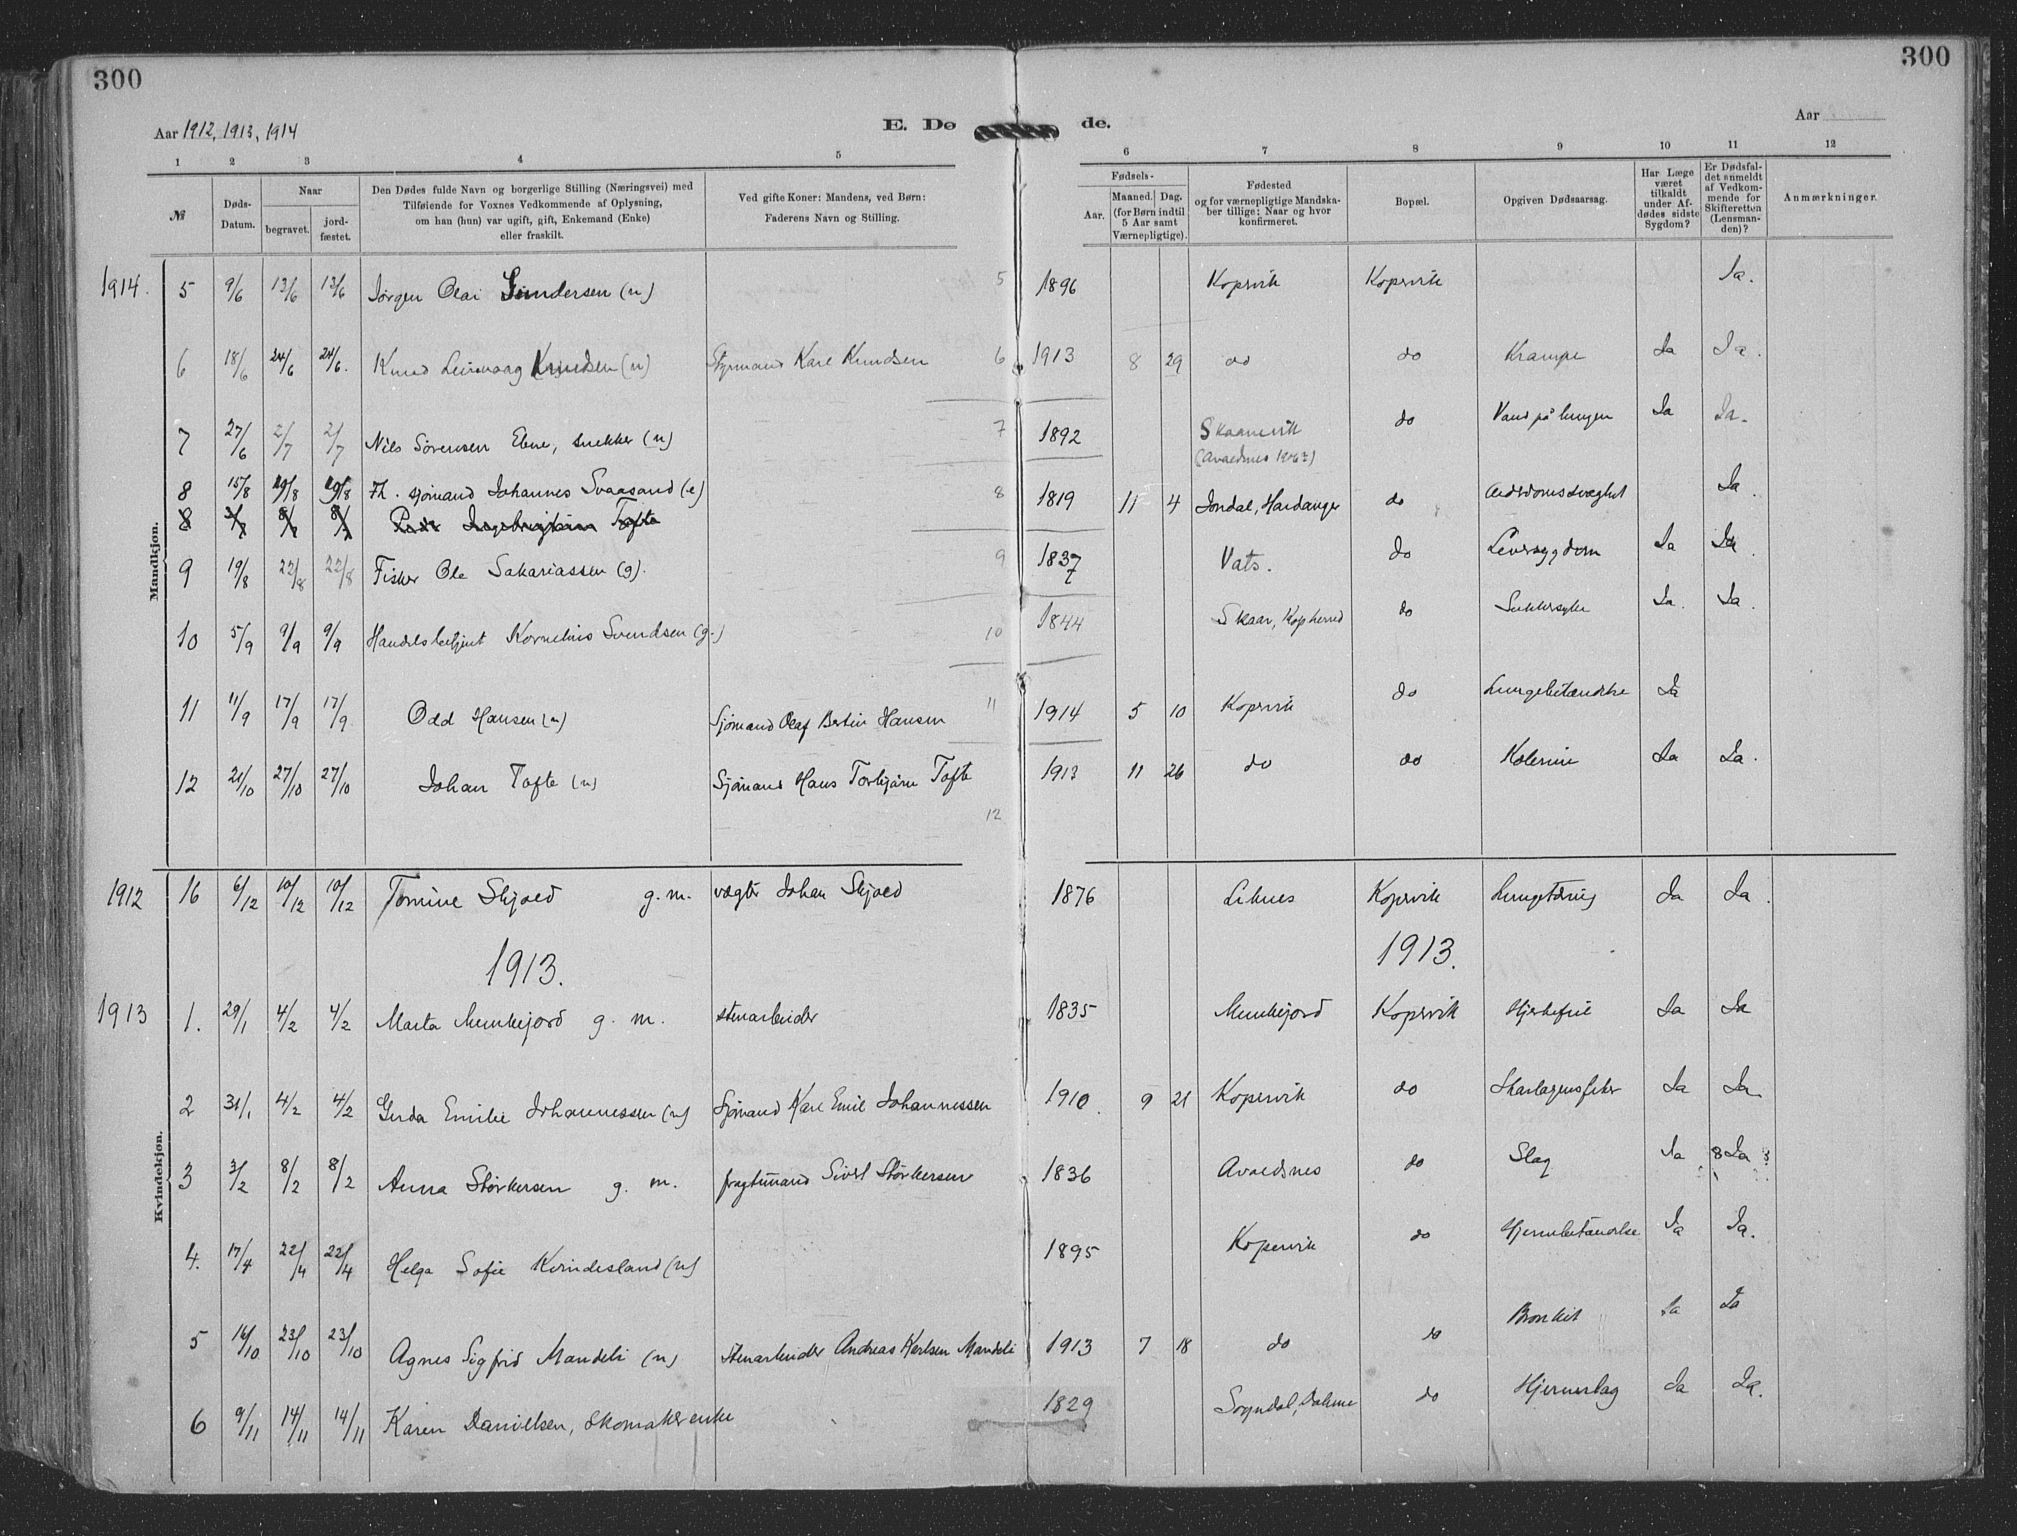 300
300
Aar 1912, 1913, 1914
E. Dø
de.
Aar
1 2 3 4 5 6 7 8 9 10 11 12
№
Døds-Datum.
Naar
begravet.
jord-fæstet.
Den Dødes fulde Navn og borgerlige Stilling (Næringsvei) med
Tilføiende for Voxnes Vedkommende af Oplysning,
om han (hun) var ugift, gift, Enkemand (Enke)
eller fraskilt.
Ved gifte Koner: Mandens, ved Børn:
Faderens Navn og Stilling.
Fødsels-
Aar.
Maaned. Dag.
(for Børn indtil
5 Aar samt
Værnepligtige).
Fødested
og for værnepligtige Mandska-
ber tillige: Naar og hvor
konfirmeret.
Bopæl.
Opgiven Dødsaarsag.
Har Læge
været
tilkaldt
under Af-
dødes sidste
Sygdom?
Er Dødsfal-
det anmeldt
af Vedkom-
mende for
Skifteretten
(Lensman-
den)?
Anmærkninger.
Mandkjøn.
1914. 5 9/6 13/6 13/6 Jørgen Olai Gundersen (u) 5 1896 Kopervik Kopervik Ja.
6 18/6 24/6 24/6. Knud Knudsen (u) Styrmand Karl Knudsen 6 1913 8 29 do do Krampe Ja Ja.
7 27/6 2/7 2/7 Nils Sørensen Ebne, snekker (u) 7 1892 Skaanevik do Vand på lungen Ja Ja.
(Avaldsnes 1906?)
8 15/8 19/8 19/8 Fh. sjømand Johannes Svaasand (e) 8 1819 11 4 Jondal, Hardanger do Alderdomssvaghet Ja.
8 Peder Ingebrigtsen Tofte
9 19/8 22/8 22/8 Fisker Ole Sakariassen (g). 9 1837 Vats. do Leversygdom Ja Ja.
10 5/9 9/9 9/9 Handelsbetjent Kornelius Svendsen (g.) 10 1844 Skaar, Kopherred do Sukkersyke Ja. Ja.
11 11/9 17/9 17/9 Odd Hansen (u) Sjømand Olaf Bertin Hansen 11 1914 5 10 Kopervik do Lungebetændelse Ja
12 21/10 27/10 27/10 Johan Tofte (u) Sjømand Hans Torbjørn Tofte 12 1913 11 26 do do Kolerine Ja Ja.
Kvindekjøn.
1912 16 6/12 10/12 10/12 Tomine Skjold g. m. vægter Johan Skjold 1876 Liknes Kopervik Lungetæring Ja Ja.
1913. 1913.
1913 1. 29/1 4/2 4/2 Marta Munkejord g. m. stenarbeider 1835 Munkejord Kopervik Hjertefeil Ja Ja
2 31/1 4/2 4/2 Gerda Emilie Johannessen (u) Sjømand Karl Emil Johannessen 1910. 9 21 Kopervik do Skarlagensfeber Ja Ja
3 3/2 8/2 8/2 Anna Størkersen g. m. fragtmand Sivert Størkersen 1836 Avaldsnes do Slag Ja Ja
4. 17/4 22/4 22/4 Helga Sofie Kvindesland (u) 1895 Kopervik do Hjernebetændelse Ja Ja.
5 16/10 23/10 23/10 Agnes Sigfrid Mandeli (u) Stenarbeider Andreas Karlsen Mandeli 1913 7 18 do do Bronkit Ja Ja
6 9/11 14/11 14/11 Karen Danielsen, skomakerenke 1829 Sogndal, Dalene do Hjerneslag Ja Ja.